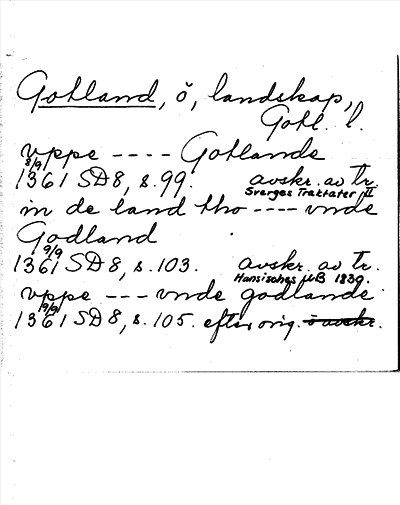 Gotland, ö, landskap,
Gotl. l.
vppe ---- Gotlande
8/9
1361 SD8, s. 99. avskr. av tr.
Sverges Traktater II
in de land tho ---- vnde
Godland
9/9
1361 SD8, s. 103. avskr. av tr.
Hansisches UB 1839.
vppe --- vnde godlande
9/9
1361 SD8, s. 105. efter orig. o avskr.